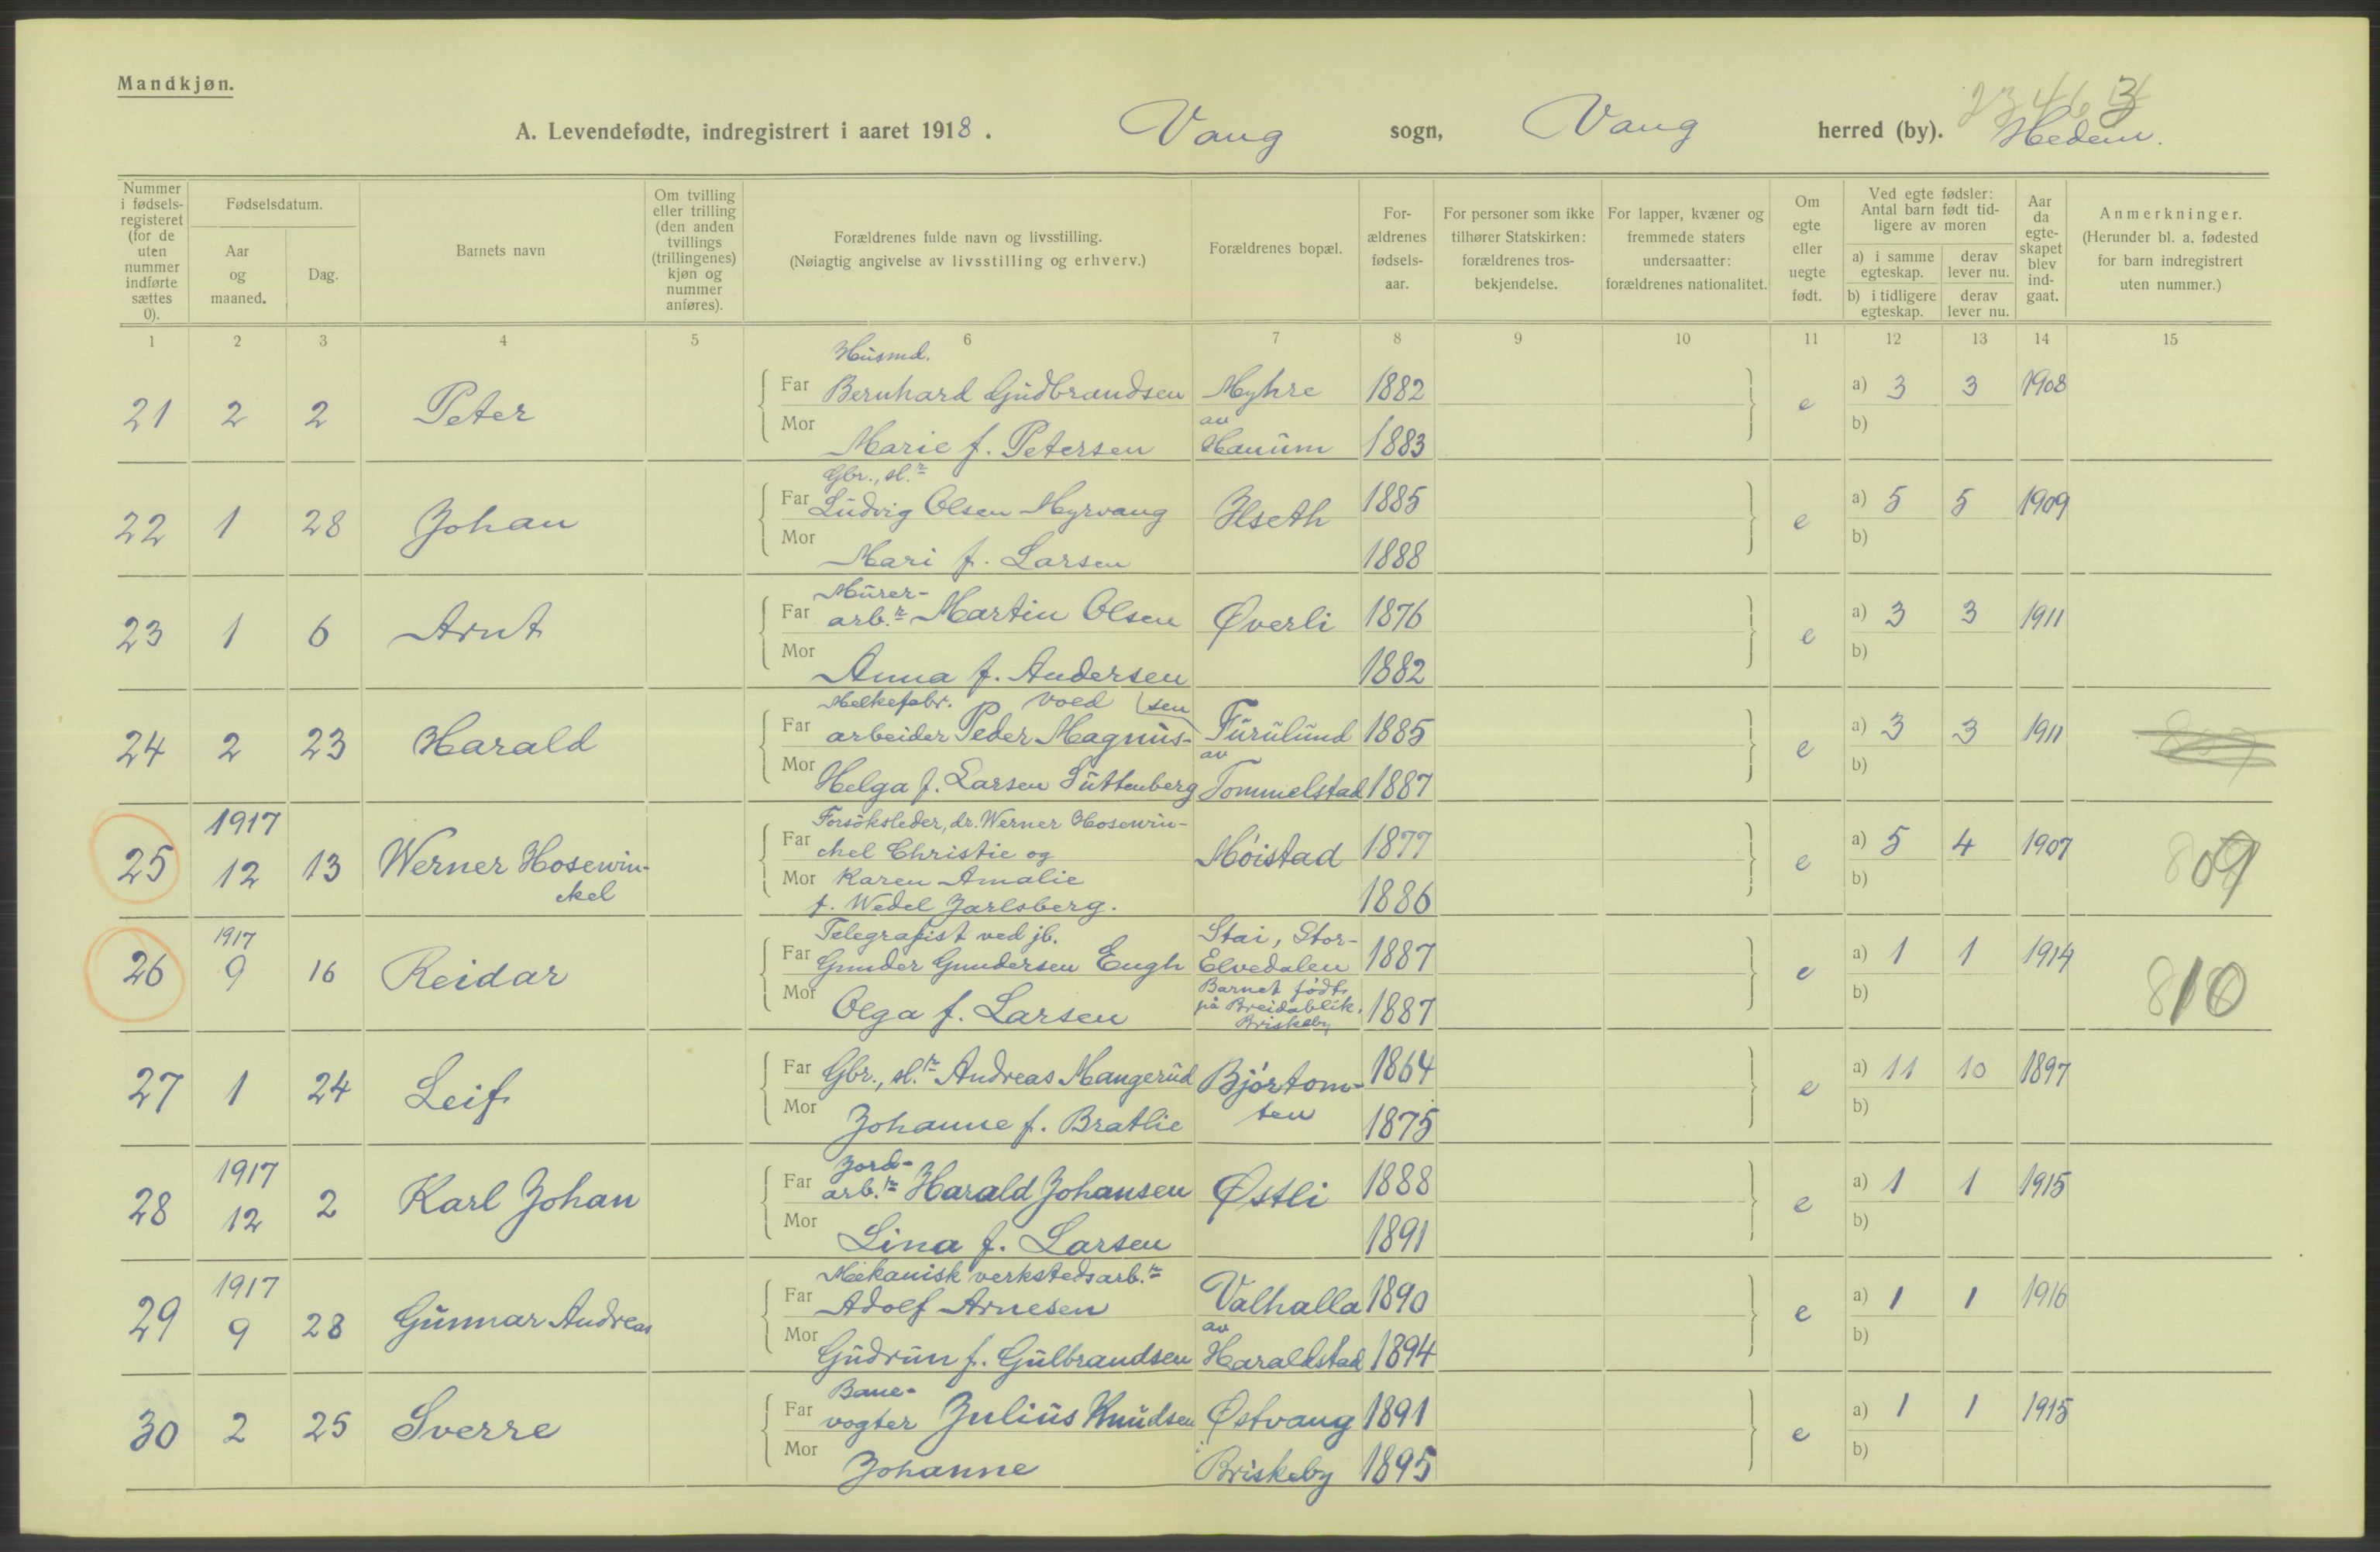 Mandkjøn.
A. Levendefødte, indregistrert i aaret 1918. Vang sogn, Vang herred (by). Hedem.
Nummer i fødselsregisteret (for de uten nummer indførte sættes 0).
Fødselsdatum.
Aar og maaned.
Dag.
Barnets navn
Om tvilling eller trilling (den anden tvillings (trillingenes) kjøn og nummer anføres).
Forældrenes fulde navn og livsstilling.
(Nøiagtig angivelse av livsstilling og erhverv.)
Forældrenes bopæl.
Forældrenes fødselsaar.
For personer som ikke tilhører Statskirken: forældrenes trosbekjendelse.
For lapper, kvæner og fremmede staters undersaatter: forældrenes nationalitet.
Om egte eller uegte født.
Ved egte fødsler: Antal barn født tidligere av moren
a) i samme egteskap. derav lever nu.
b) i tidligere egteskap. derav lever nu.
Aar da egteskapet blev indgaat.
Anmerkninger.
(Herunder bl. a. fødested for barn indregistrert uten nummer.)
1 2 3 4 5 6 7 8 9 10 11 12 13 14 15
Husmd.
21 2 2 Peter Far Bernhard Gudbrandsen Myhre 1882 e a) 3 3 1908
Mor Marie f. Petersen av Hanum 1883 b)
Gbr., sl.r
22 1 28 Johan Far Ludvig Olsen Myrvang Ilseth 1885 e a) 5 5 1909
Mor Mari f. Larsen 1888 b)
Murer-
23 1 6 Arnt Far arb.r Martin Olsen Øverli 1876 e a) 3 3 1911
Mor Anna f. Andersen 1882 b)
Melkefabr. vold sen
24 2 23 Harald Far arbeider Peder Magnus- Furulund 1885 e a) 3 3 1911
Mor Helga f. Larsen Suttenberg av Tommelstad 1887 b)
1917 Forsöksleder, dr. Werner Hosewin-
25 12 13 Werner Hosewin- Far ckel Christie og Möistad 1877 e a) 5 4 1907 809
ckel Mor Karen Amalie b)
f. Wedel Jarlsberg. 1886
1917 Telegrafist ved jb. Stai, Stor-
26 9 16 Reidar Far Gunder Gundersen Engh Elvedalen 1887 e a) 1 1 1914 810
Mor Olga f. Larsen Barnet födt på Breidablik, Briskeby 1887 b)
27 1 24 Leif Far Gbr., sl.r Andreas Mangerud Björtom- 1864 e a) 11 10 1897
Mor Johanne f. Bratlie ten 1875 b)
1917 Jord-
28 12 2 Karl Johan Far arb.r Harald Johansen Østli 1888 e a) 1 1 1915
Mor Lina f. Larsen 1891 b)
1917 Mekanisk verkstedsarb.r
29 9 28 Gunnar Andreas Far Adolf Arnesen Valhalla 1890 e a) 1 1 1916
Mor Gudrun f. Gulbrandsen av Haraldstad 1894 b)
Bane-
30 2 25 Sverre Far vogter Julius Knudsen Østvang 1891 e a) 1 1 1915
Mor Johanne Briskeby 1895 b)